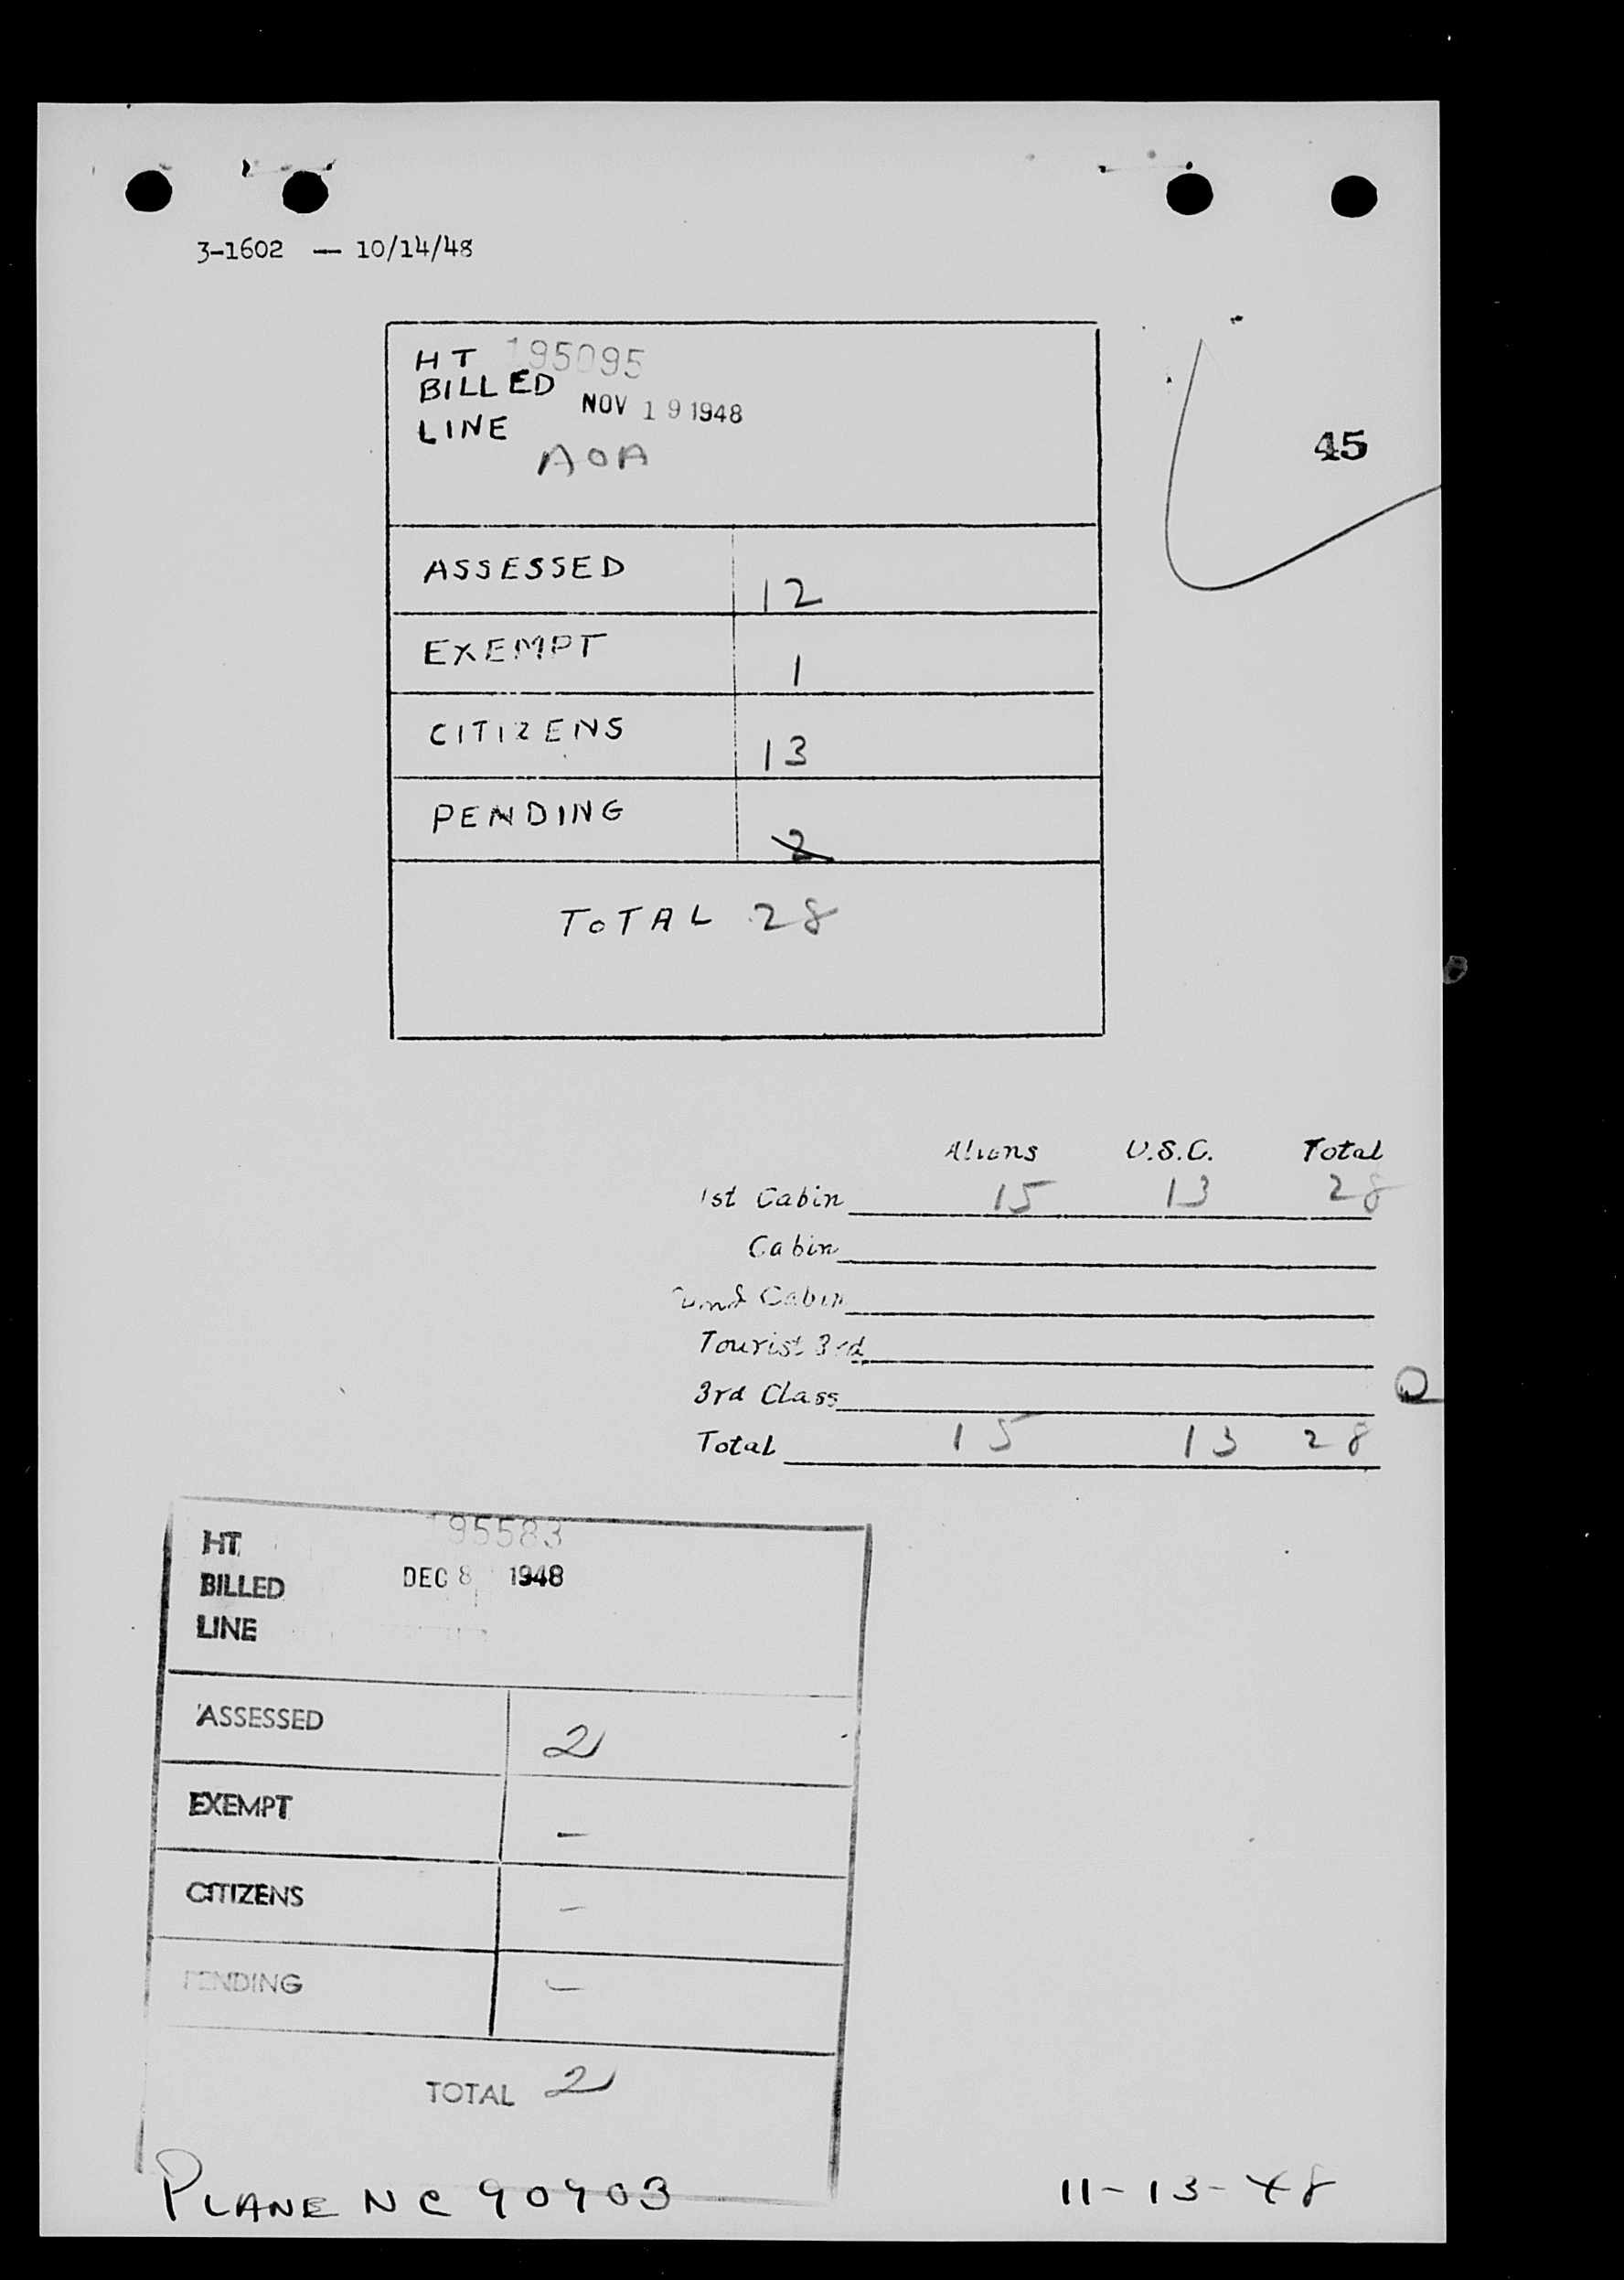 3-1602 — 10/14/48
HT 195095
BILLED NOV 19 1948
LINE
AOA
45
ASSESSED 12
EXEMPT 1
CITIZENS 13
PENDING 2
TOTAL 28
Aliens U.S.C. Total
1st Cabin 15 13 28
Cabin
Cabin
Tourist 3rd
3rd Class
Total 15 13 28
HT 195583
BILLED DEC 8 1948
LINE
ASSESSED 2
EXEMPT —
CITIZENS —
PENDING —
TOTAL 2
PLANE NC 90903 11-13-48